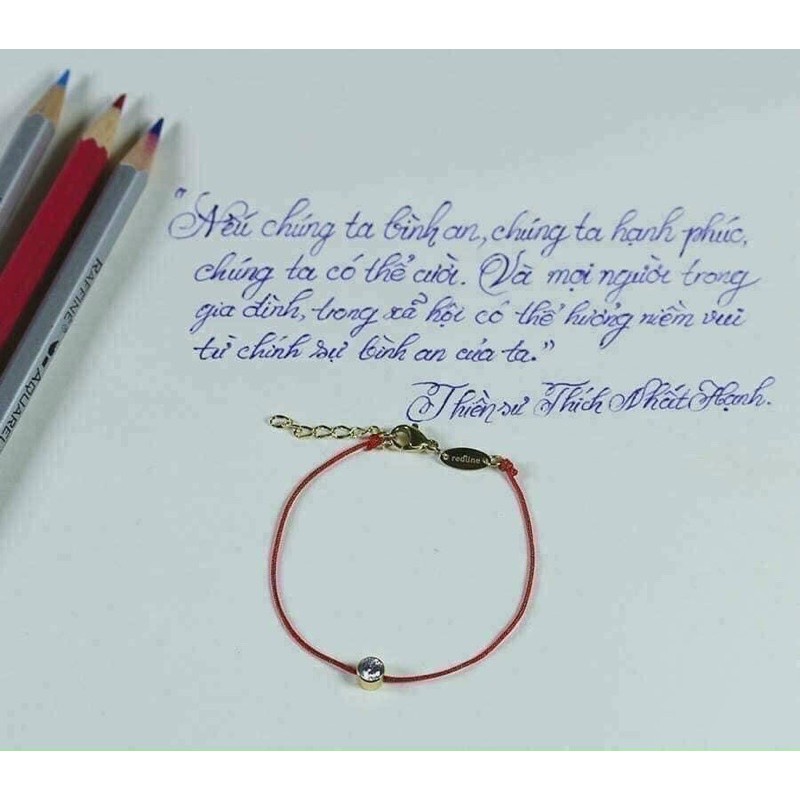 "Nếu chúng ta bình an, chúng ta hạnh phúc,
chúng ta có thể cười. Và mọi người trong
gia đình, trong xã hội có thể hưởng niềm vui
từ chính sự bình an của ta."
Thiền sư Thích Nhất Hạnh.
redline
RAFFINE
AQUAREL